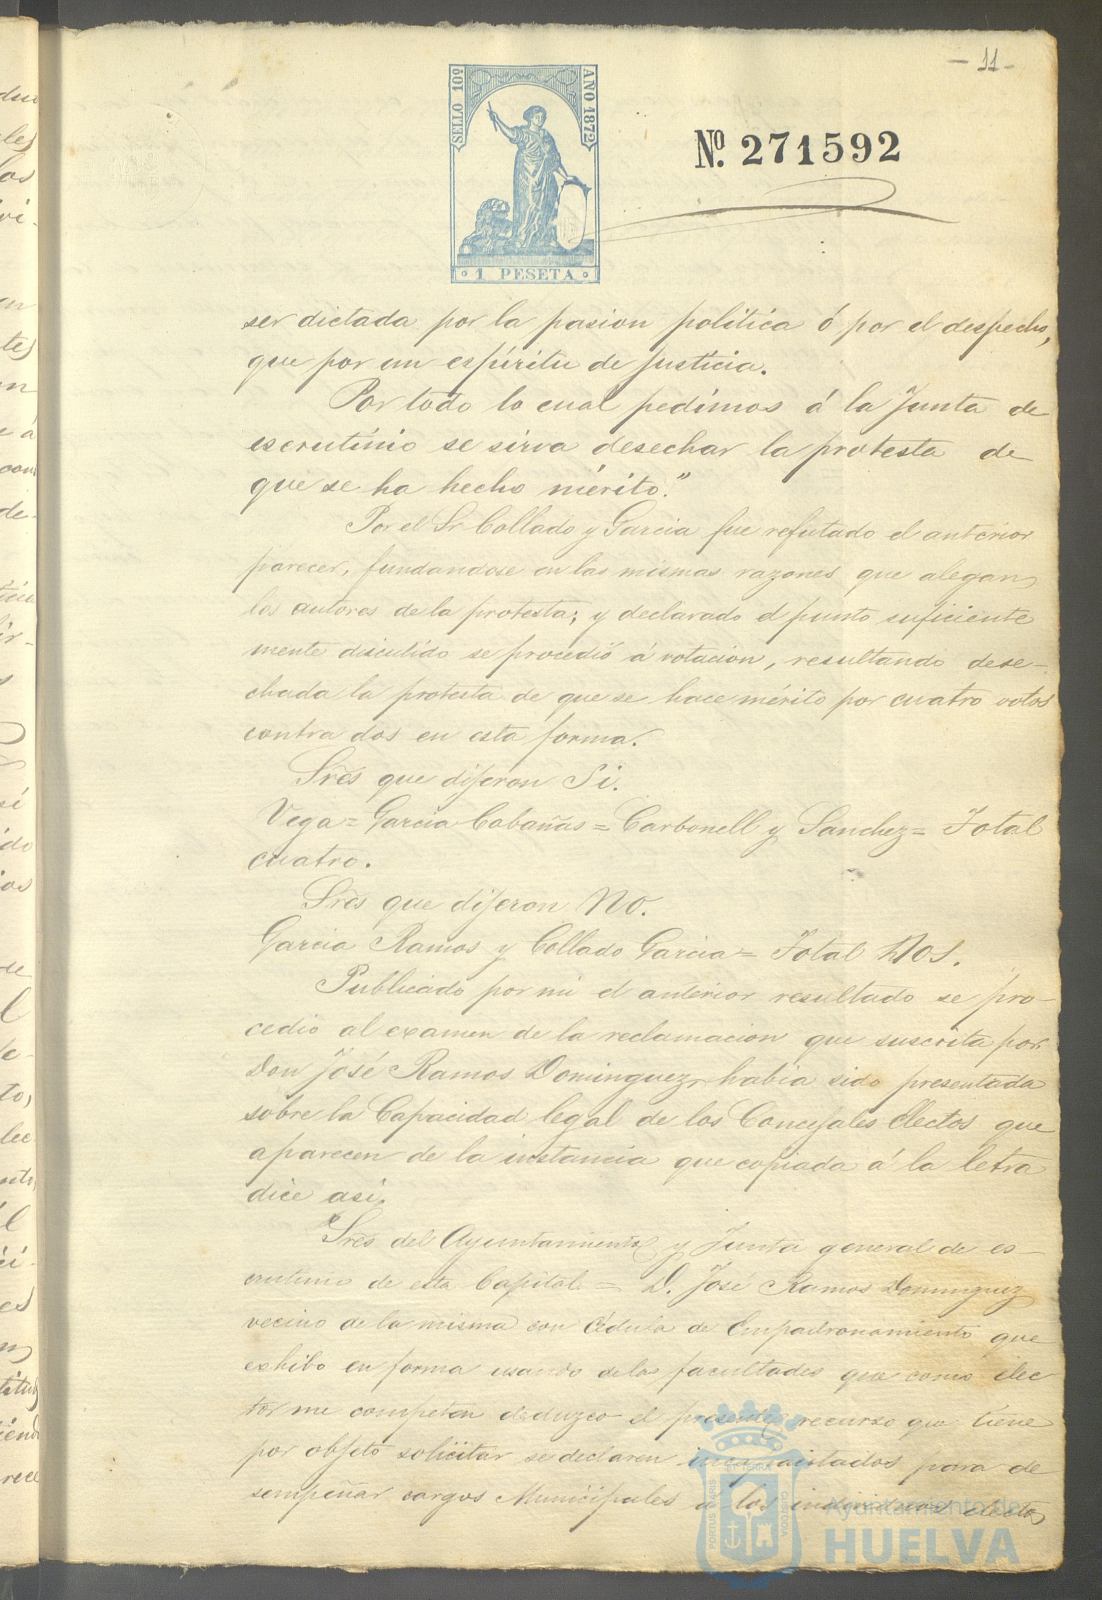 - 11 -
SELLO 10º
AÑO 1872
1 PESETA
Nº. 271592
ser dictada por la pasion politica ó por el despecho,
que por un espíritu de justicia.
Por todo lo cual pedimos á la Junta de
escrutinio se sirva desechar la protesta de
que se ha hecho mérito."
Por el Sr Collado y Garcia fue refutado el anterior
parecer, fundandose en las mismas razones que alegan
los autores de la protesta; y declarado el punto suficiente
mente discutido se procedió á votacion, resultando dese-
chada la protesta de que se hace mérito por cuatro votos
contra dos en esta forma.
Sres que dijeron Si.
Vega = Garcia Cabañas = Carbonell y Sanchez = Total
cuatro.
Sres que dijeron No.
Garcia Ramos y Collado Garcia = Total Dos.
Publicado por mi el anterior resultado se pro-
cedió al examen de la reclamacion que suscrita por
Don José Ramos Dominguez habia sido presentada
sobre la Capacidad legal de los Concejales Electos que
aparecen de la instancia que copiada á la letra
dice asi.
"Sres del Ayuntamiento y Junta general de es-
crutinio de esta Capital = D. José Ramos Dominguez
vecino de la misma con Cédula de Empadronamiento que
exhibo en forma usando de las facultades que como elec
tor me competen deduzco el presente recurso que tiene
por objeto solicitar se declaren incapacitados para de
sempeñar cargos Municipales á los individuos electos
PORTUS MARIS
ET TERRAE
CUSTODIA
Ayuntamiento de
HUELVA